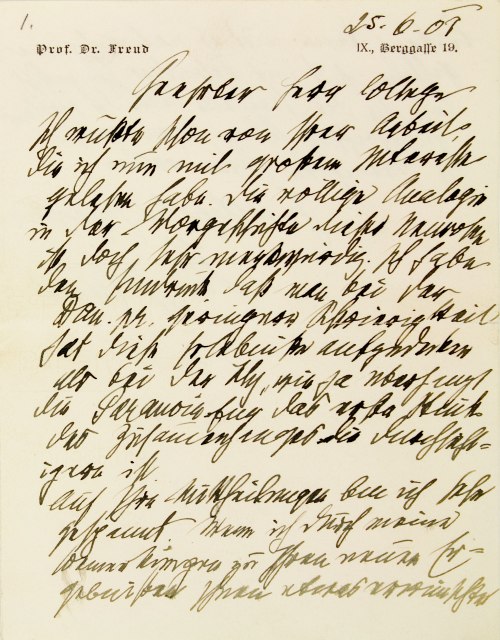 1.
25.6.08
Prof. Dr. Freud
IX., Berggasse 19.
Geehrter Herr College
Ich wußte schon von Ihrer Arbeit,
die ich nun mit großem Interesse
gelesen habe. Die völlige Analogie
in der Vorgeschichte dieser Neurosen
ist doch sehr merkwürdig. Ich habe
den Eindruck daß man bei der
Dem. pr. geringere Schwierigkeit
hat diese Erlebnisse aufzudecken
als bei der Hy, wie ja überhaupt
die Paranoia das erste Stück
des Zusammenhanges die durchsich-
igere ist.
Auf Ihre Mittheilungen bin ich sehr
gespannt. Wenn ich durch meine
Bemerkungen zu Ihren neuen Er-
gebnissen Ihnen etwas erwünschtes